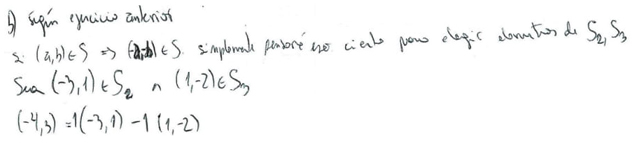 b) Según ejercicio anterior
si (a,b) ∈ S ⇒ (-a,-b) ∈ S. simplemente pensaré eso cierto para elegir elementos de S₂, S₃
Sean (-3,1) ∈ S₂ ∧ (1,-2) ∈ S₃
(-4,3) = 1(-3,1) - 1 (1,-2)